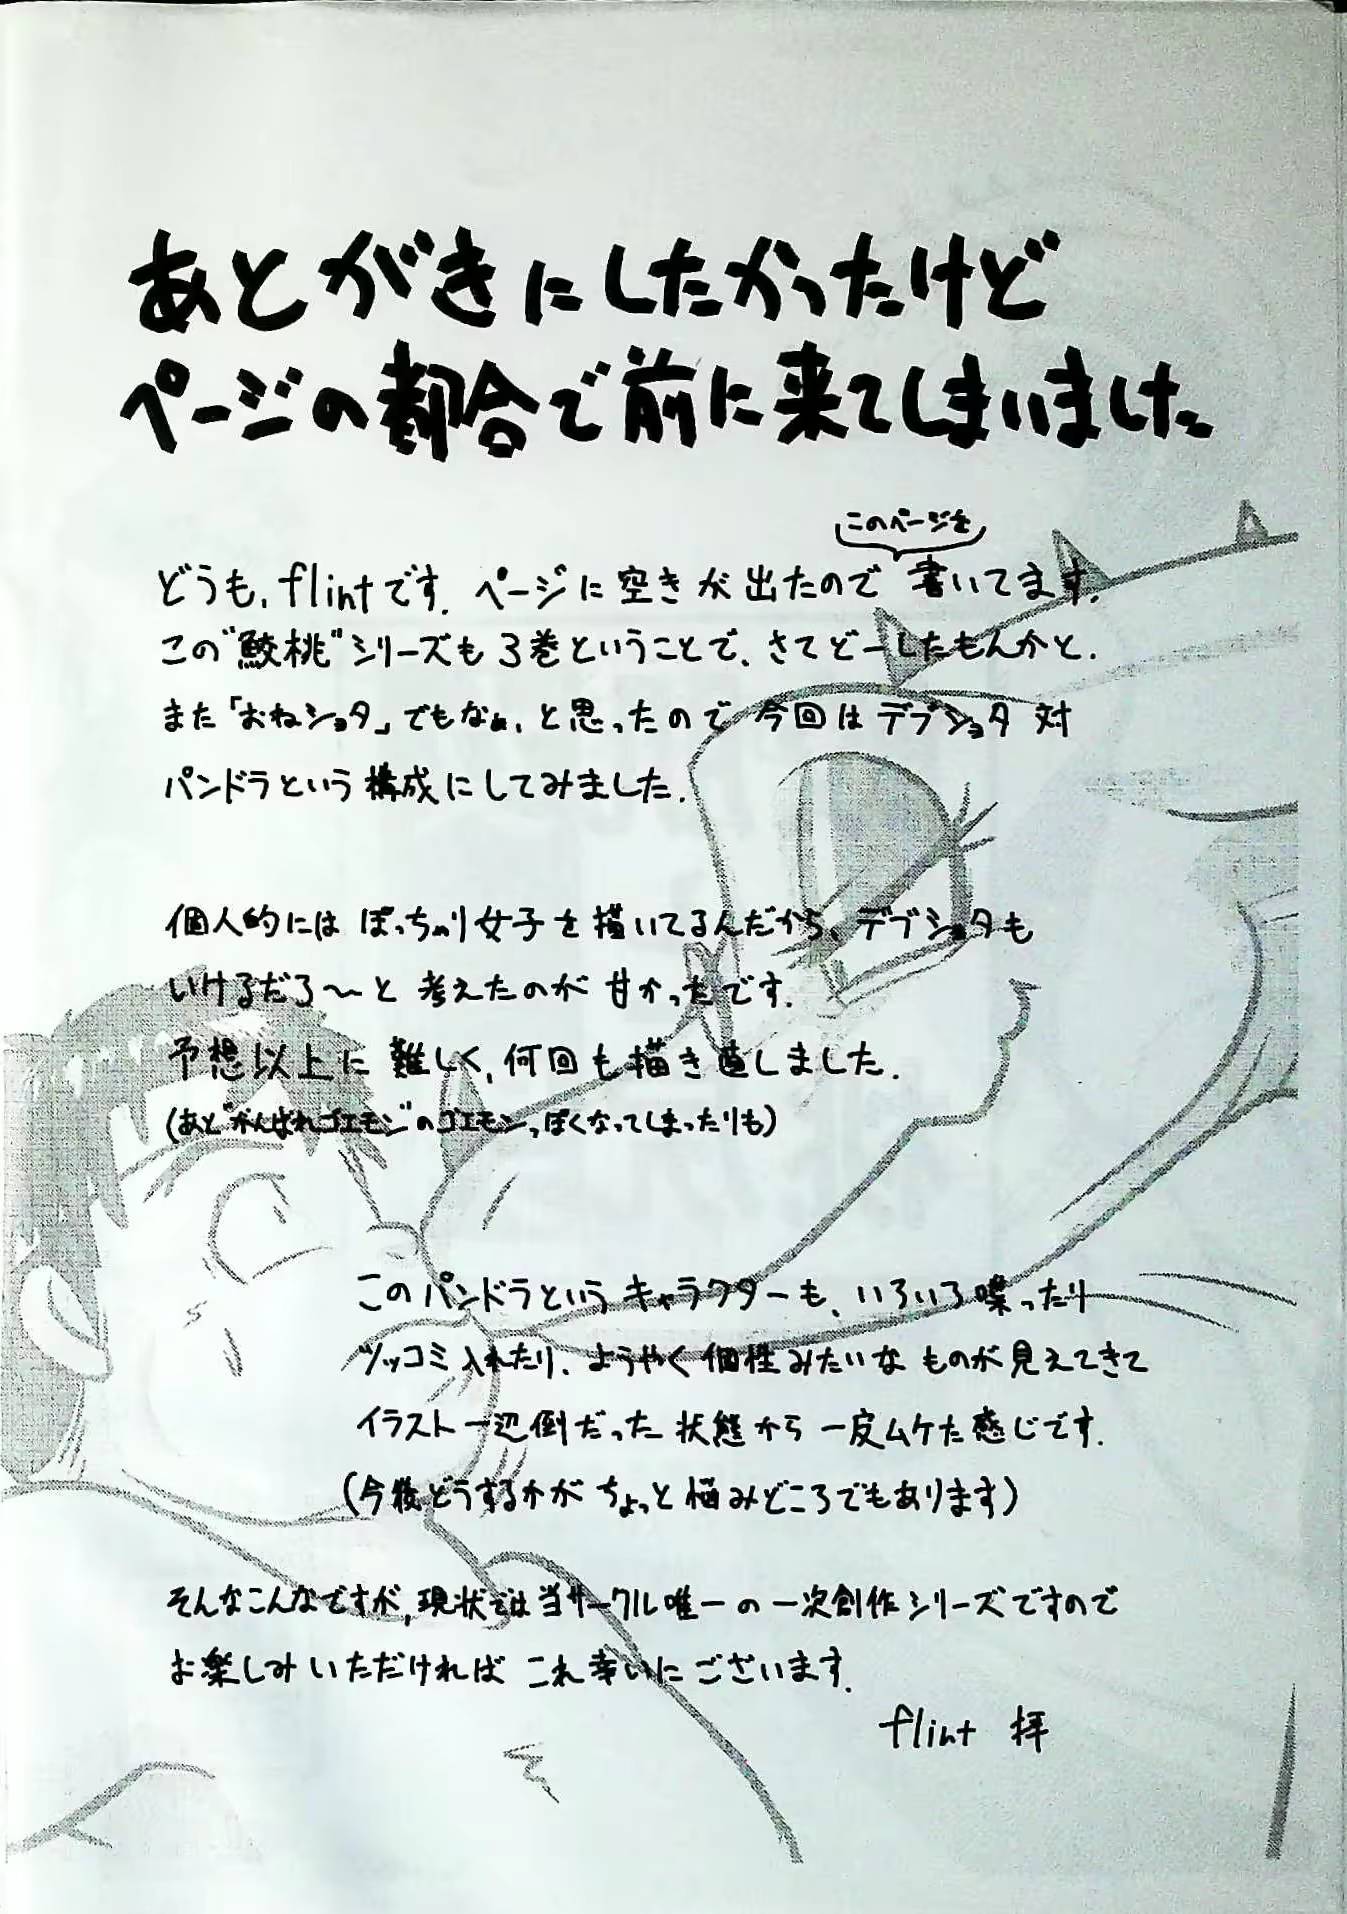 あとがきにしたかったけど
ページの都合で前に来てしまいました
このページを
どうも、flintです。ページに空きが出たので書いてます。
この"鮫桃"シリーズも3巻ということで、さてどーしたもんかと。
また「おねショタ」でもなぁ、と思ったので今回はデブショタ対
パンドラという構成にしてみました。
個人的にはぽっちゃり女子を描いてるんだから、デブショタも
いけるだろ〜と考えたのが甘かったです。
予想以上に難しく、何回も描き直しました。
(あと"がんばれゴエモン"のゴエモンっぽくなってしまったりも)
このパンドラというキャラクターも、いろいろ喋ったり
ツッコミ入れたり、ようやく個性みたいなものが見えてきて
イラスト一辺倒だった状態から一皮ムケた感じです。
(今後どうするかがちょっと悩みどころでもあります)
そんなこんなですが、現状では当サークル唯一の一次創作シリーズですので
お楽しみいただければこれ幸いにございます。
flint 拝